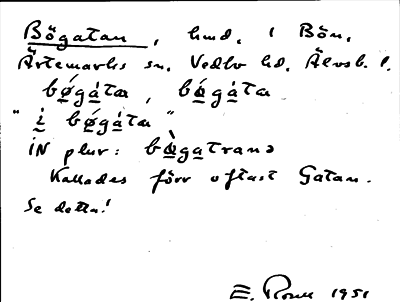 Bögatan, hmd. i Bön,
Ärtemarks sn. Vedbo hd. Älvsb. l.
bǿgàta, bǿgàta
"i bǿgàta"
IN plur: bøgatranə
Kallades förr oftast Gatan.
Se detta!
E. 1951